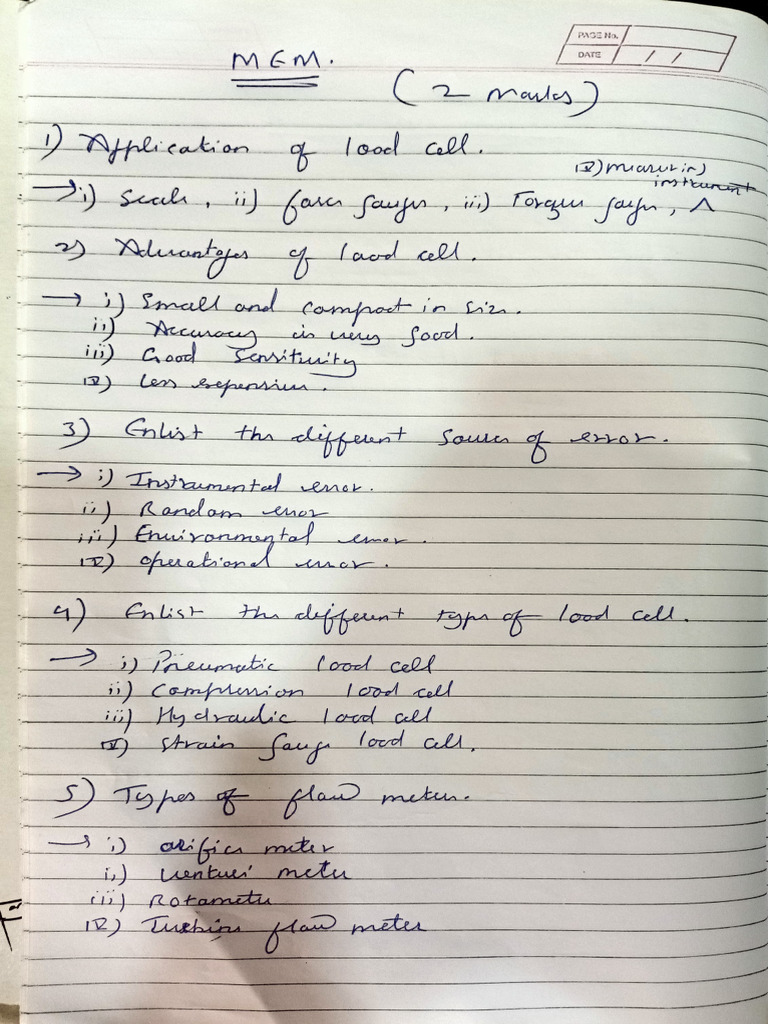 PAGE No.
DATE / /
M E M.
(2 marks)
1) Application of load cell.
iv) measuring
instrument
→ i) Scale, ii) force gauges, iii) Torque gauges, ^
2) Advantages of load cell.
→ i) Small and compact in size.
ii) Accuracy is very good.
iii) Good Sensitivity
iv) Less expensive.
3) Enlist the different sources of error.
→ i) Instrumental error.
ii) Random error
iii) Environmental error.
iv) operational error.
4) Enlist the different types of load cell.
→ i) Pneumatic load cell
ii) compression load cell
iii) Hydraulic load cell
iv) strain gauge load cell.
5) Types of flow meter.
→ i) orifice meter
ii) venturi meter
iii) Rotameter
iv) Turbine flow meter